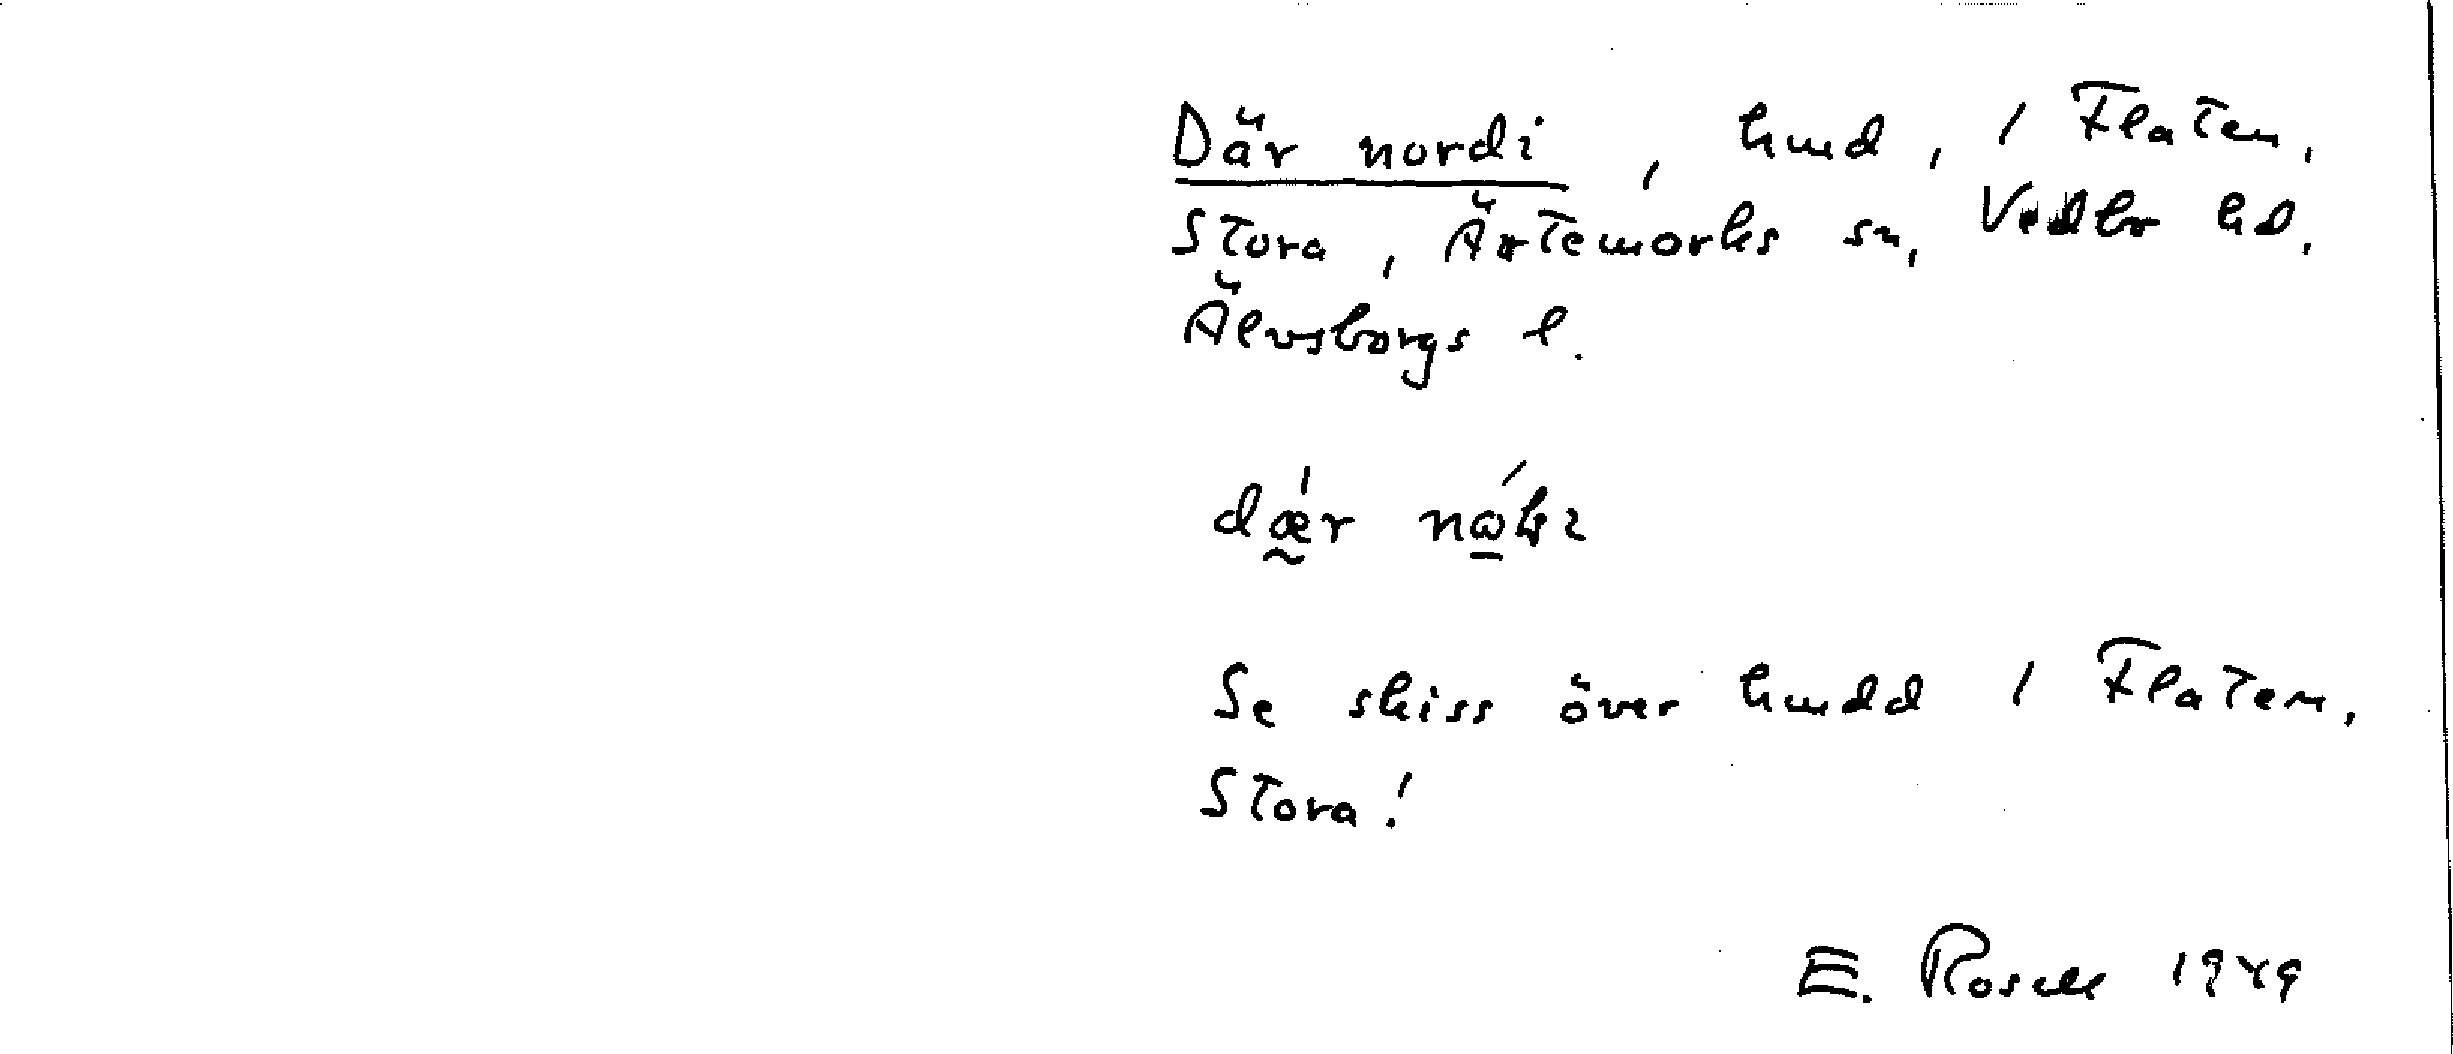 Där nordi, hmd, 1 Flaten,
Stora, Ärtemarks sn, Vedbo hd,
Älvsborgs l.
dǽ̰r
Se skiss över hmdd 1 Flaten,
Stora!
E. Rosell 1949